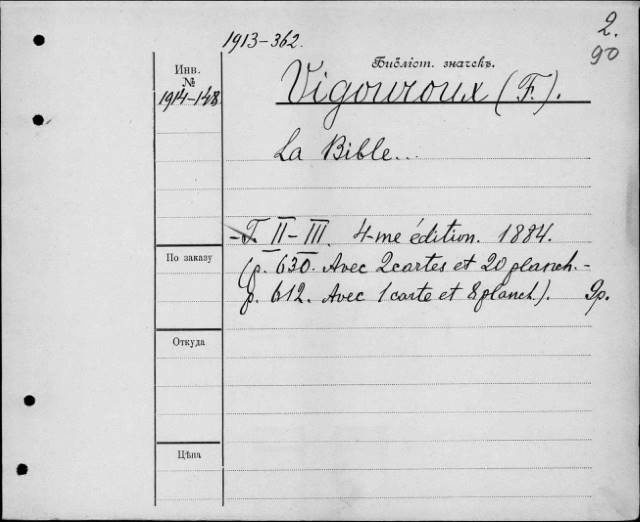 1913-362.
2.
90
Инв.
№
1914-148.
Библіот. значекъ.
Vigouroux (F.).
La Bible...
-T. II-III. 4-me édition. 1884.
По заказу
(p. 630. Avec 2 cartes et 20 planch. -
p. 612. Avec 1 carte et 8 planch.). 9p.
Откуда
Цѣна